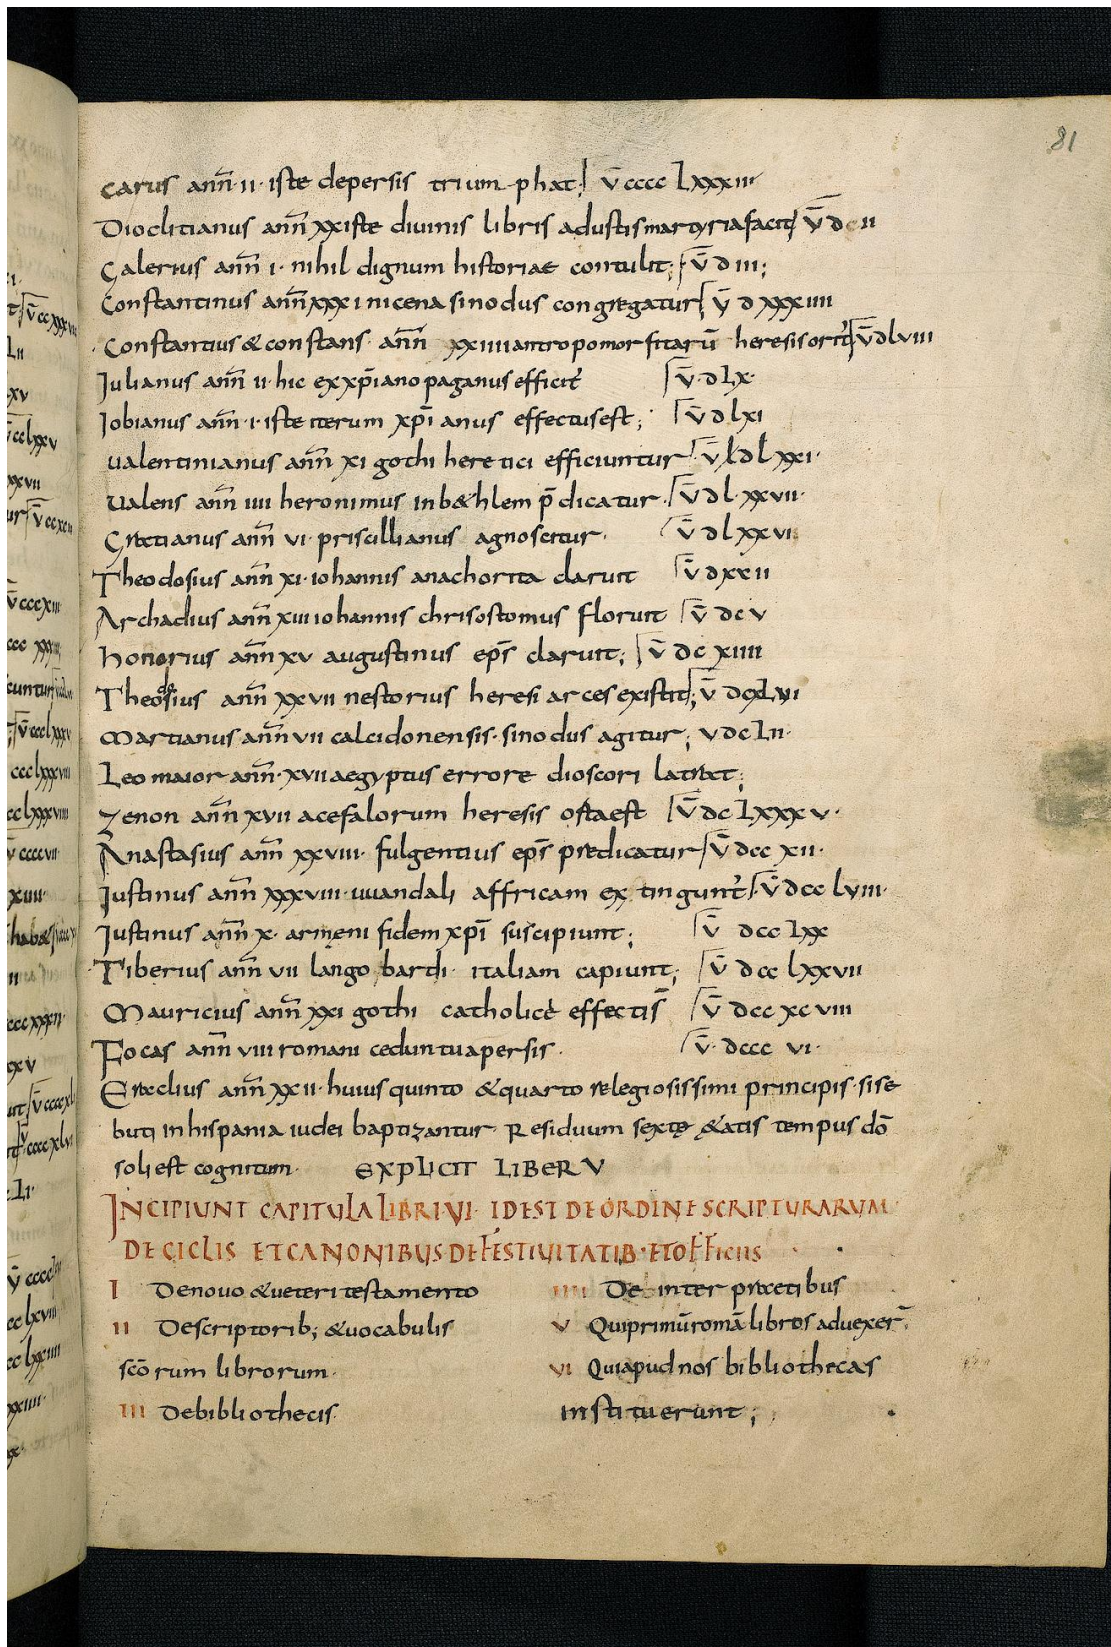 81
carus ann̄ · ii · iste depersis trium phat; v̄ cccc Lxxxiii
Dioclitianus ann̄ xx iste diuinis libris adustis martyria facit; v̄ dcii
Galerius ann̄ i · nihil dignum historiae contulit; v̄ d iii;
Constantinus ann̄ xxxi nicena sinodus congregatur; v̄ d xxxiiii
Constantius & constans ann̄ xxiiii antropomorfitarū heresis orit̄ v̄ dLviii
Julianus ann̄ ii · hic ex xp̄iano paganus efficit̄ v̄ · d Lx ·
Jobianus ann̄ · i · iste iterum xp̄i anus effectus est; v̄ d lxi
ualentinianus ann̄ xi gothi heretici efficiuntur v̄ d l xxi ·
ualens ann̄ iiii heronimus inb&hlem p̄dicatur · v̄ d l · xxvii ·
Gratianus ann̄ vi · priscillianus agnoscitur · v̄ d l xxvi
Theodosius ann̄ xi · iohannis anachorita claruit v̄ dxxii
Archadius ann̄ xiii iohannis chrisostomus floruit v̄ dc v
honorius ann̄ xv augustinus ep̄s claruit; v̄ dc xiiii
Theodosius ann̄ xxvii nestorius heresi arces existit; v̄ dcxLvi
Martianus ann̄ vii calcidonensis · sinodus agitur; v dc Lii ·
Leo maior ann̄ · xvii aegyptus errore dioscori latrat;
Zenon ann̄ xvii acefalorum heresis osta est v̄ dc Lxxx v ·
Anastasius ann̄ xxviii · fulgentius ep̄s predicatur v̄ dcc xii ·
Justinus ann̄ xxxviii · uuandali affricam ex tingunt̄ v̄ dcc lviii ·
Justinus ann̄ x · armeni fidem xp̄i suscipiunt; v̄ dcc Lxx
Tiberius ann̄ vii lango bardi · italiam capiunt; v̄ dcc lxxvii
Mauricius ann̄ xxi gothi catholice effectis̄ v̄ dcc xc viii
Focas ann̄ viii romani ceduntu apersis · v̄ · dccc vi ·
Eraclius ann̄ xxii · huius quinto & quarto relegiosissimi principis · sise
buti in hispania iudei baptizantur · Residuum sextę &atis tempus dō
soli est cognitum · EXPLICIT LIBER V
INCIPIUNT CAPITULA LIBRI VI · ID EST DE ORDINE SCRIPTURARUM
DE CICLIS ET CANONIBUS · DE FESTIUITATIB · ET OFFICIIS
I De nouo & ueteri testamento
II De scriptorib; & uocabulis
scōrum librorum ·
III De bibliothecis ·
IIII De inter pretibus
V Qui primū romā libros aduexer̄
VI Qui apud nos bibliothecas
instituerunt;